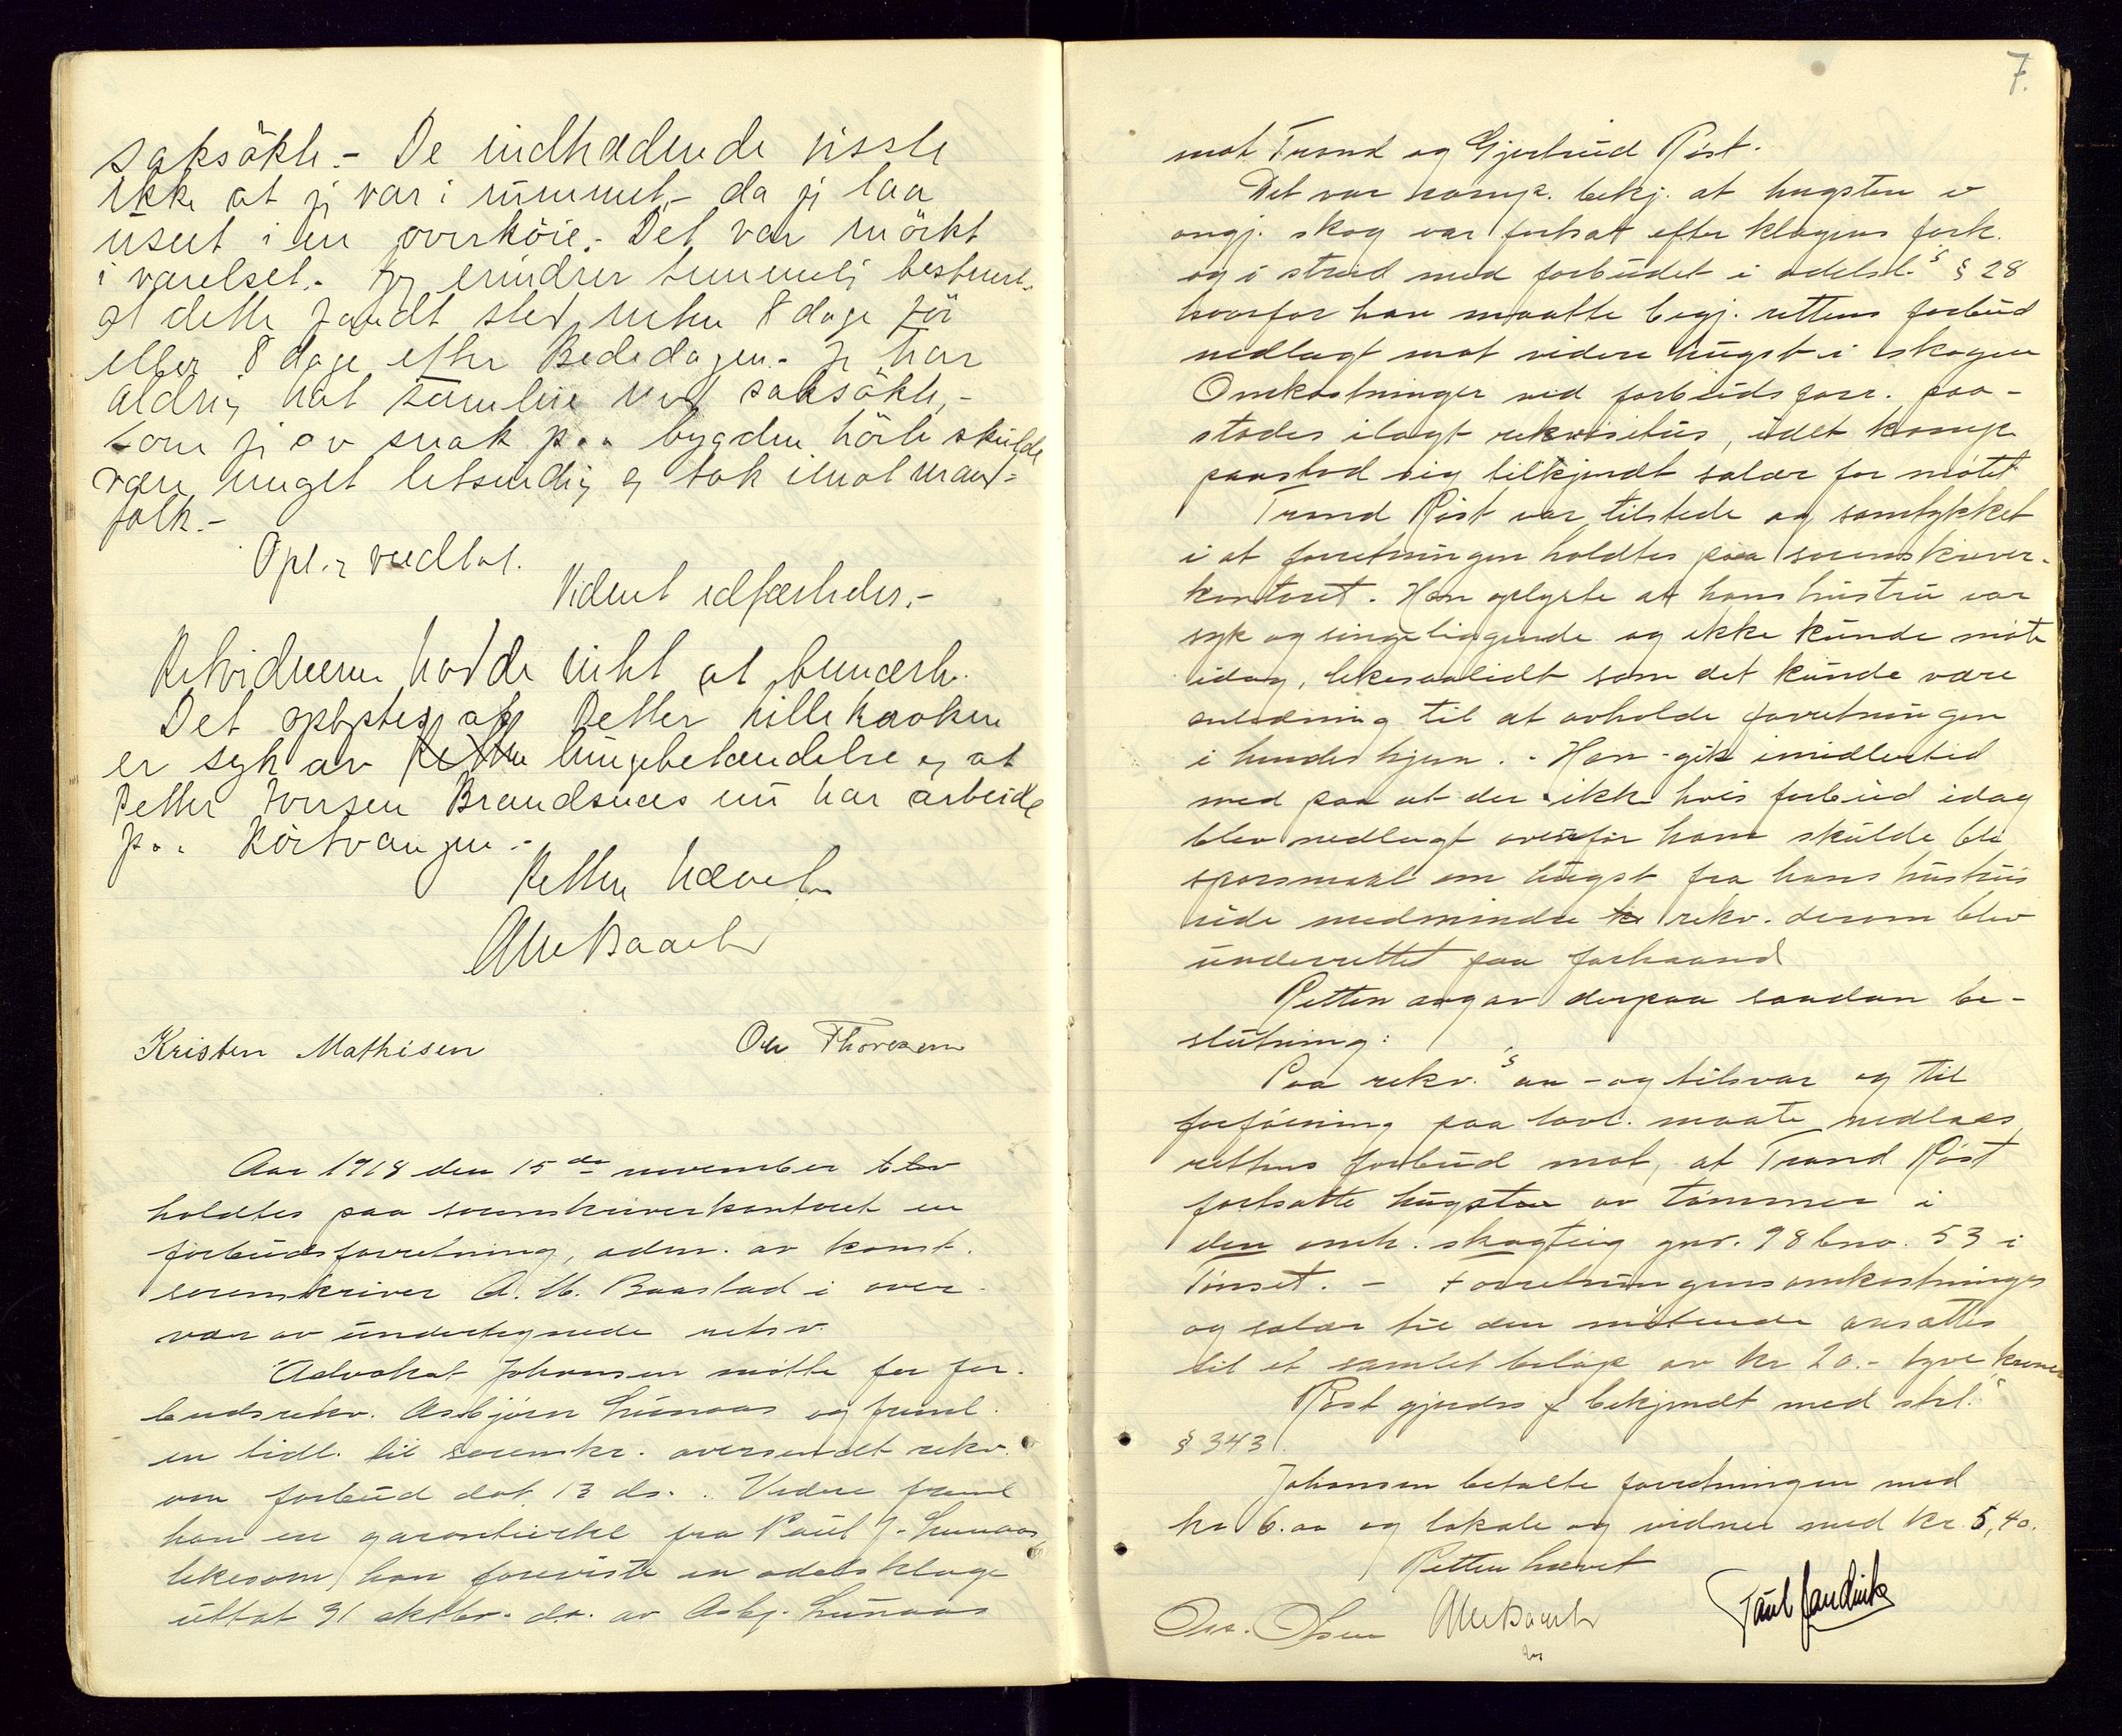 saksökte.- De indtrædende visste
ikke at jeg var i rummet,- da jeg laa
uset i en overköie.- Det var mörkt
i værelset.- Jeg erindrer temmelig bestemt,
at dette fandt sted enten 8 dage för
eller 8 dage efter Bededagen.- Jeg har
aldrig hat samleie med saksökte,-
som jeg av snak paa bygden hörte skulde
være meget letsindig og tok imot mand-
folk.-
Opl. og vedtat.
Vidnet edfæstedes.-
Retsvidnerne hadde intet at bemærke.
Det oplystes at Petter Lillekroken
er syk av lungebetændelse og at
Petter Iversen Brandsnes nu har arbeide
paa Röstvangen.-
Retten hævet
AMBaastad
Kristen Mathisen Ole Thoresen
Aar 1918 den 15de november blev
holdtes paa sorenskriverkontoret en
forbudsforretning, adm. av konst.
sorenskriver A. M. Baastad i over-
vær av undertegnede retsv.
Advokat Johansen møtte for for-
budsrekv. Asbjørn Lunaas og freml.
en tidl. til sorenskr. oversendt rekv.
om forbud dat. 13 ds. Videre freml
han en garantierkl fra Paul J. Lunaas,
likesom han foreviste en odelsklage
uttat 31 oktbr. d.a. av Asbj. Lunaas
7.
mot Trond og Gjertrud Røst.
Det var komp. bekj. at hugsten i
omgj. skog var fortsat efter klagens fork.
og i strid med forbudet i odelsl.s § 28
hvorfor han maatte begj. rettens forbud
nedlagt mot videre hugst i skogen
Omkostninger ved forbudsforr. paa-
stodes ilagt rekvisitus, idet komp
paastod sig tilkjendt salær for møtet
Trond Røst var tilstede og samtykket
i at forretningen holdtes paa sorenskriver-
kontoret. Han oplyste at hans hustru var
syk og sengeliggende og ikke kunde møte
idag, likesaalidt som det kunde være
anledning til at avholde forretningen
i hendes hjem. - Han gik imidlertid
med paa at der ikke hvis forbud idag
blev nedlagt ovenfor ham skulde bli
spørsmaal om hugst fra hans hustrus
side medmindre rekv. derom blev
underrettet paa forhaand
Retten avgav derpaa saadan be-
slutning:
Paa rekv.s an- og tilsvar og til
forføining paa lovl. maate nedlaes
rettens forbud mot, at Trond Røst
fortsatte hugsten av tømmer i
den omh. skogteig gnr. 98 bno. 53 i
Tønset. - Forretningens omkostninger
og salær til den møtende ansattes
til et samlet beløp av kr 20.- tyve kroner
Røst gjordes bekjendt med strl.s
§ 343.
Johansen betalte forretningen med
kr 6.00 og lokale og vidner med kr. 5,40.
Retten hævet
Olsen AMBaastad Paul Sandvik